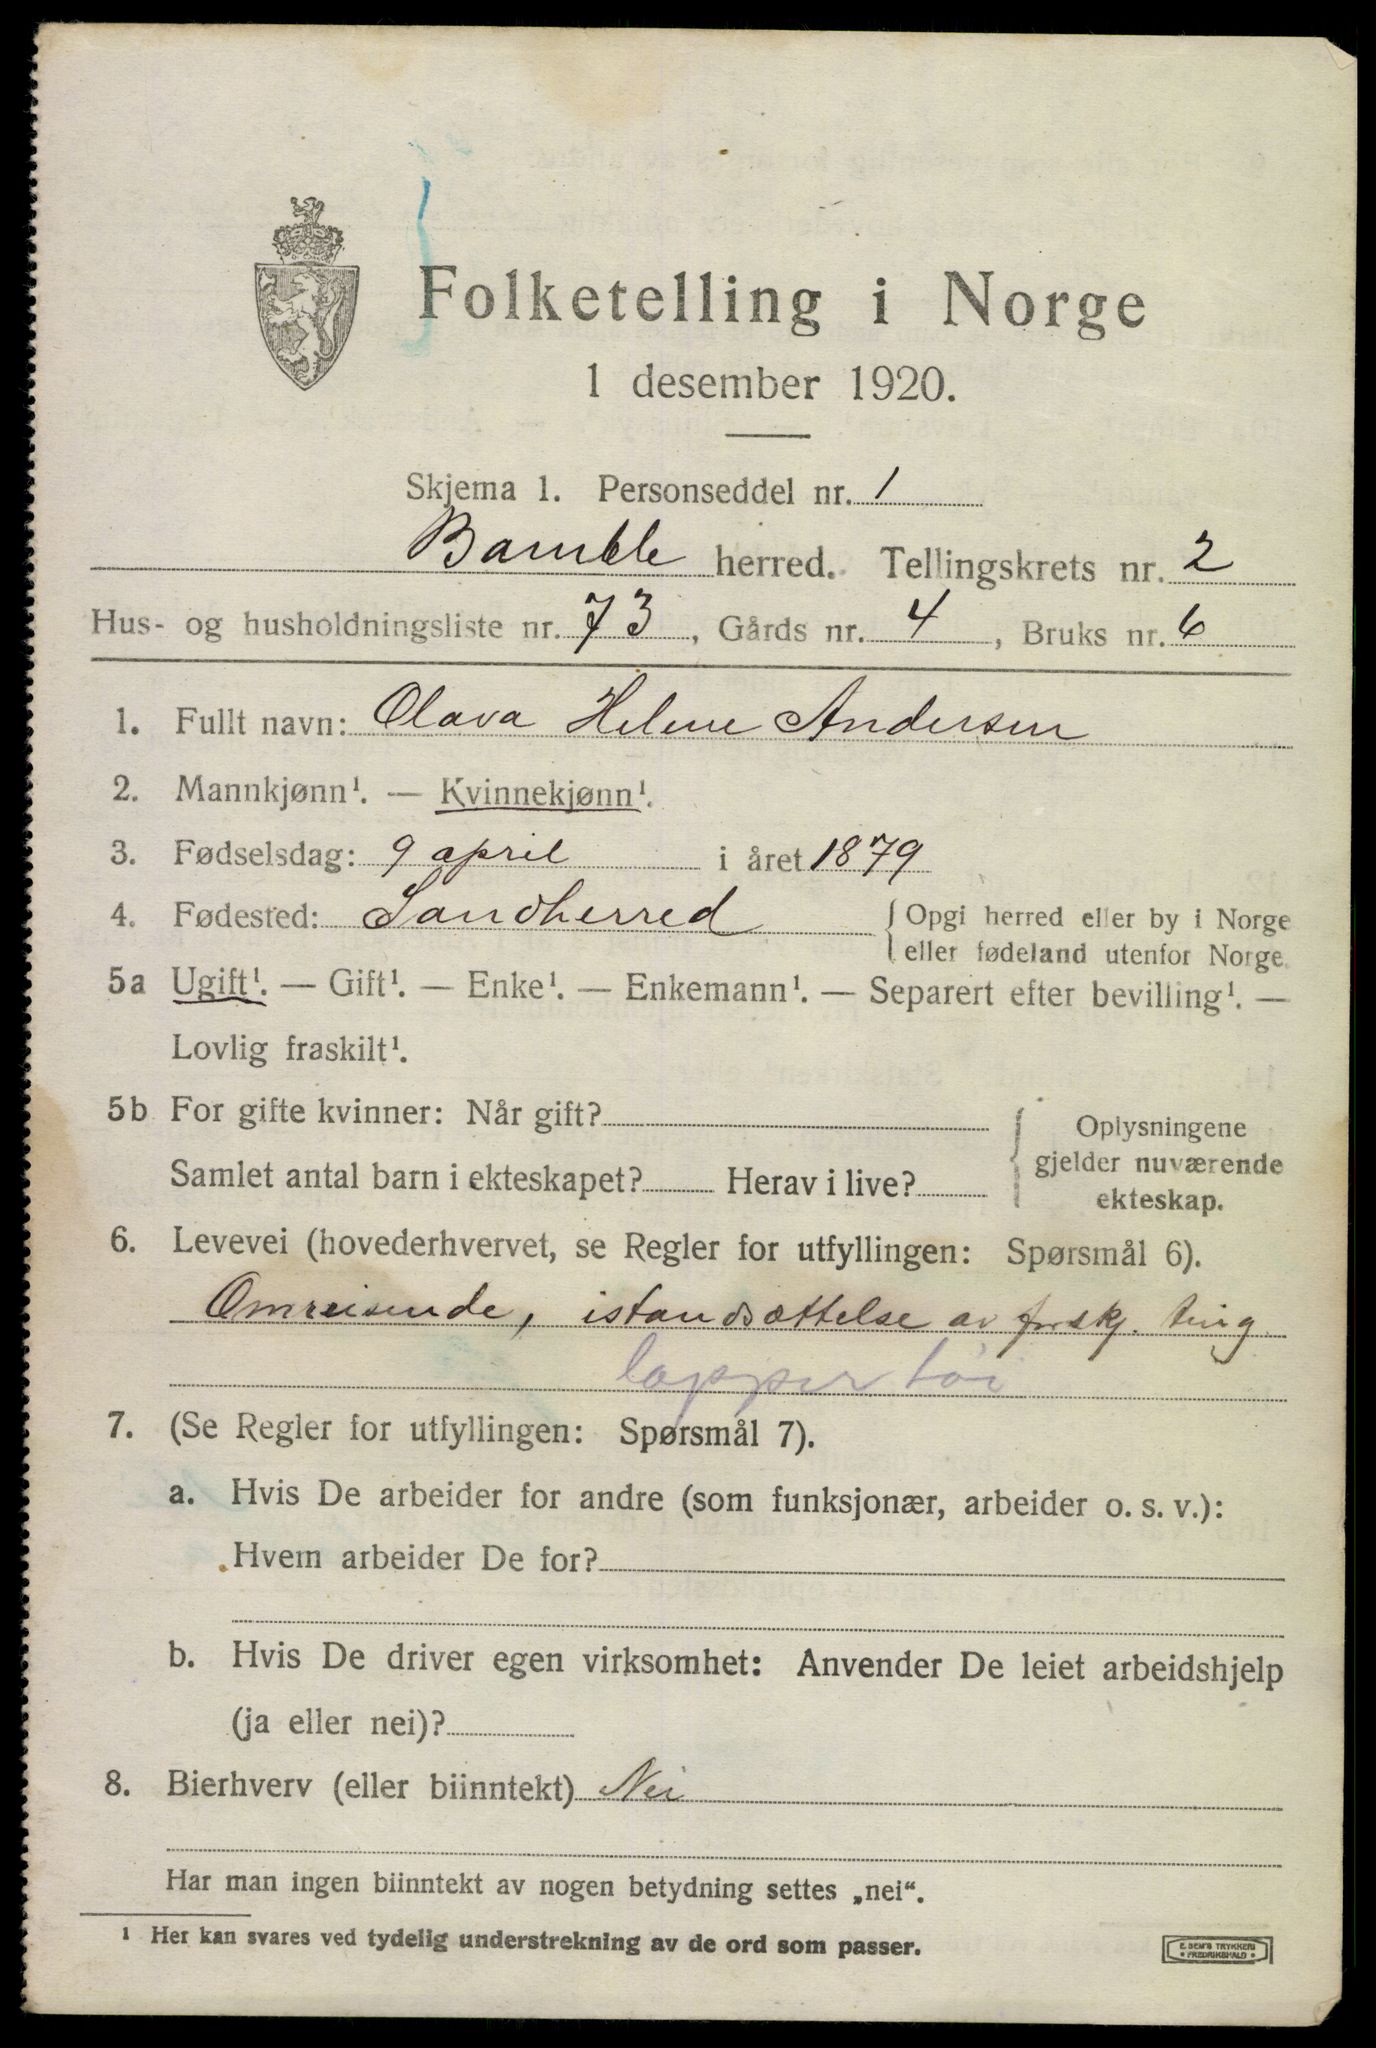 Folketelling i Norge
1 desember 1920.
Skjema 1. Personseddel nr. 1
Bamble herred. Tellingskrets nr. 2
Hus- og husholdningsliste nr. 73, Gårds nr. 4, Bruks nr. 6
1. Fullt navn: Olava Helene Andersen
2. Mannkjønn¹. — Kvinnekjønn¹.
3. Fødselsdag: 9 april i året 1879
4. Fødested: Sandherred { Opgi herred eller by i Norge
eller fødeland utenfor Norge.
5a Ugift¹. — Gift¹. — Enke¹. — Enkemann¹. — Separert efter bevilling¹. —
Lovlig fraskilt¹.
5b For gifte kvinner: Når gift?
Samlet antal barn i ekteskapet? Herav i live?
{ Oplysningene
gjelder nuværende
ekteskap.
6. Levevei (hovederhvervet, se Regler for utfyllingen: Spørsmål 6).
Omreisende, istandsættelse av forskj. ting
lapper tøi
7. (Se Regler for utfyllingen: Spørsmål 7).
a. Hvis De arbeider for andre (som funksjonær, arbeider o. s. v.):
Hvem arbeider De for?
b. Hvis De driver egen virksomhet: Anvender De leiet arbeidshjelp
(ja eller nei)?
8. Bierhverv (eller biinntekt) Nei
Har man ingen biinntekt av nogen betydning settes „nei“.
¹ Her kan svares ved tydelig understrekning av de ord som passer.
E. SEM'S TRYKKERI
FREDRIKSHALD